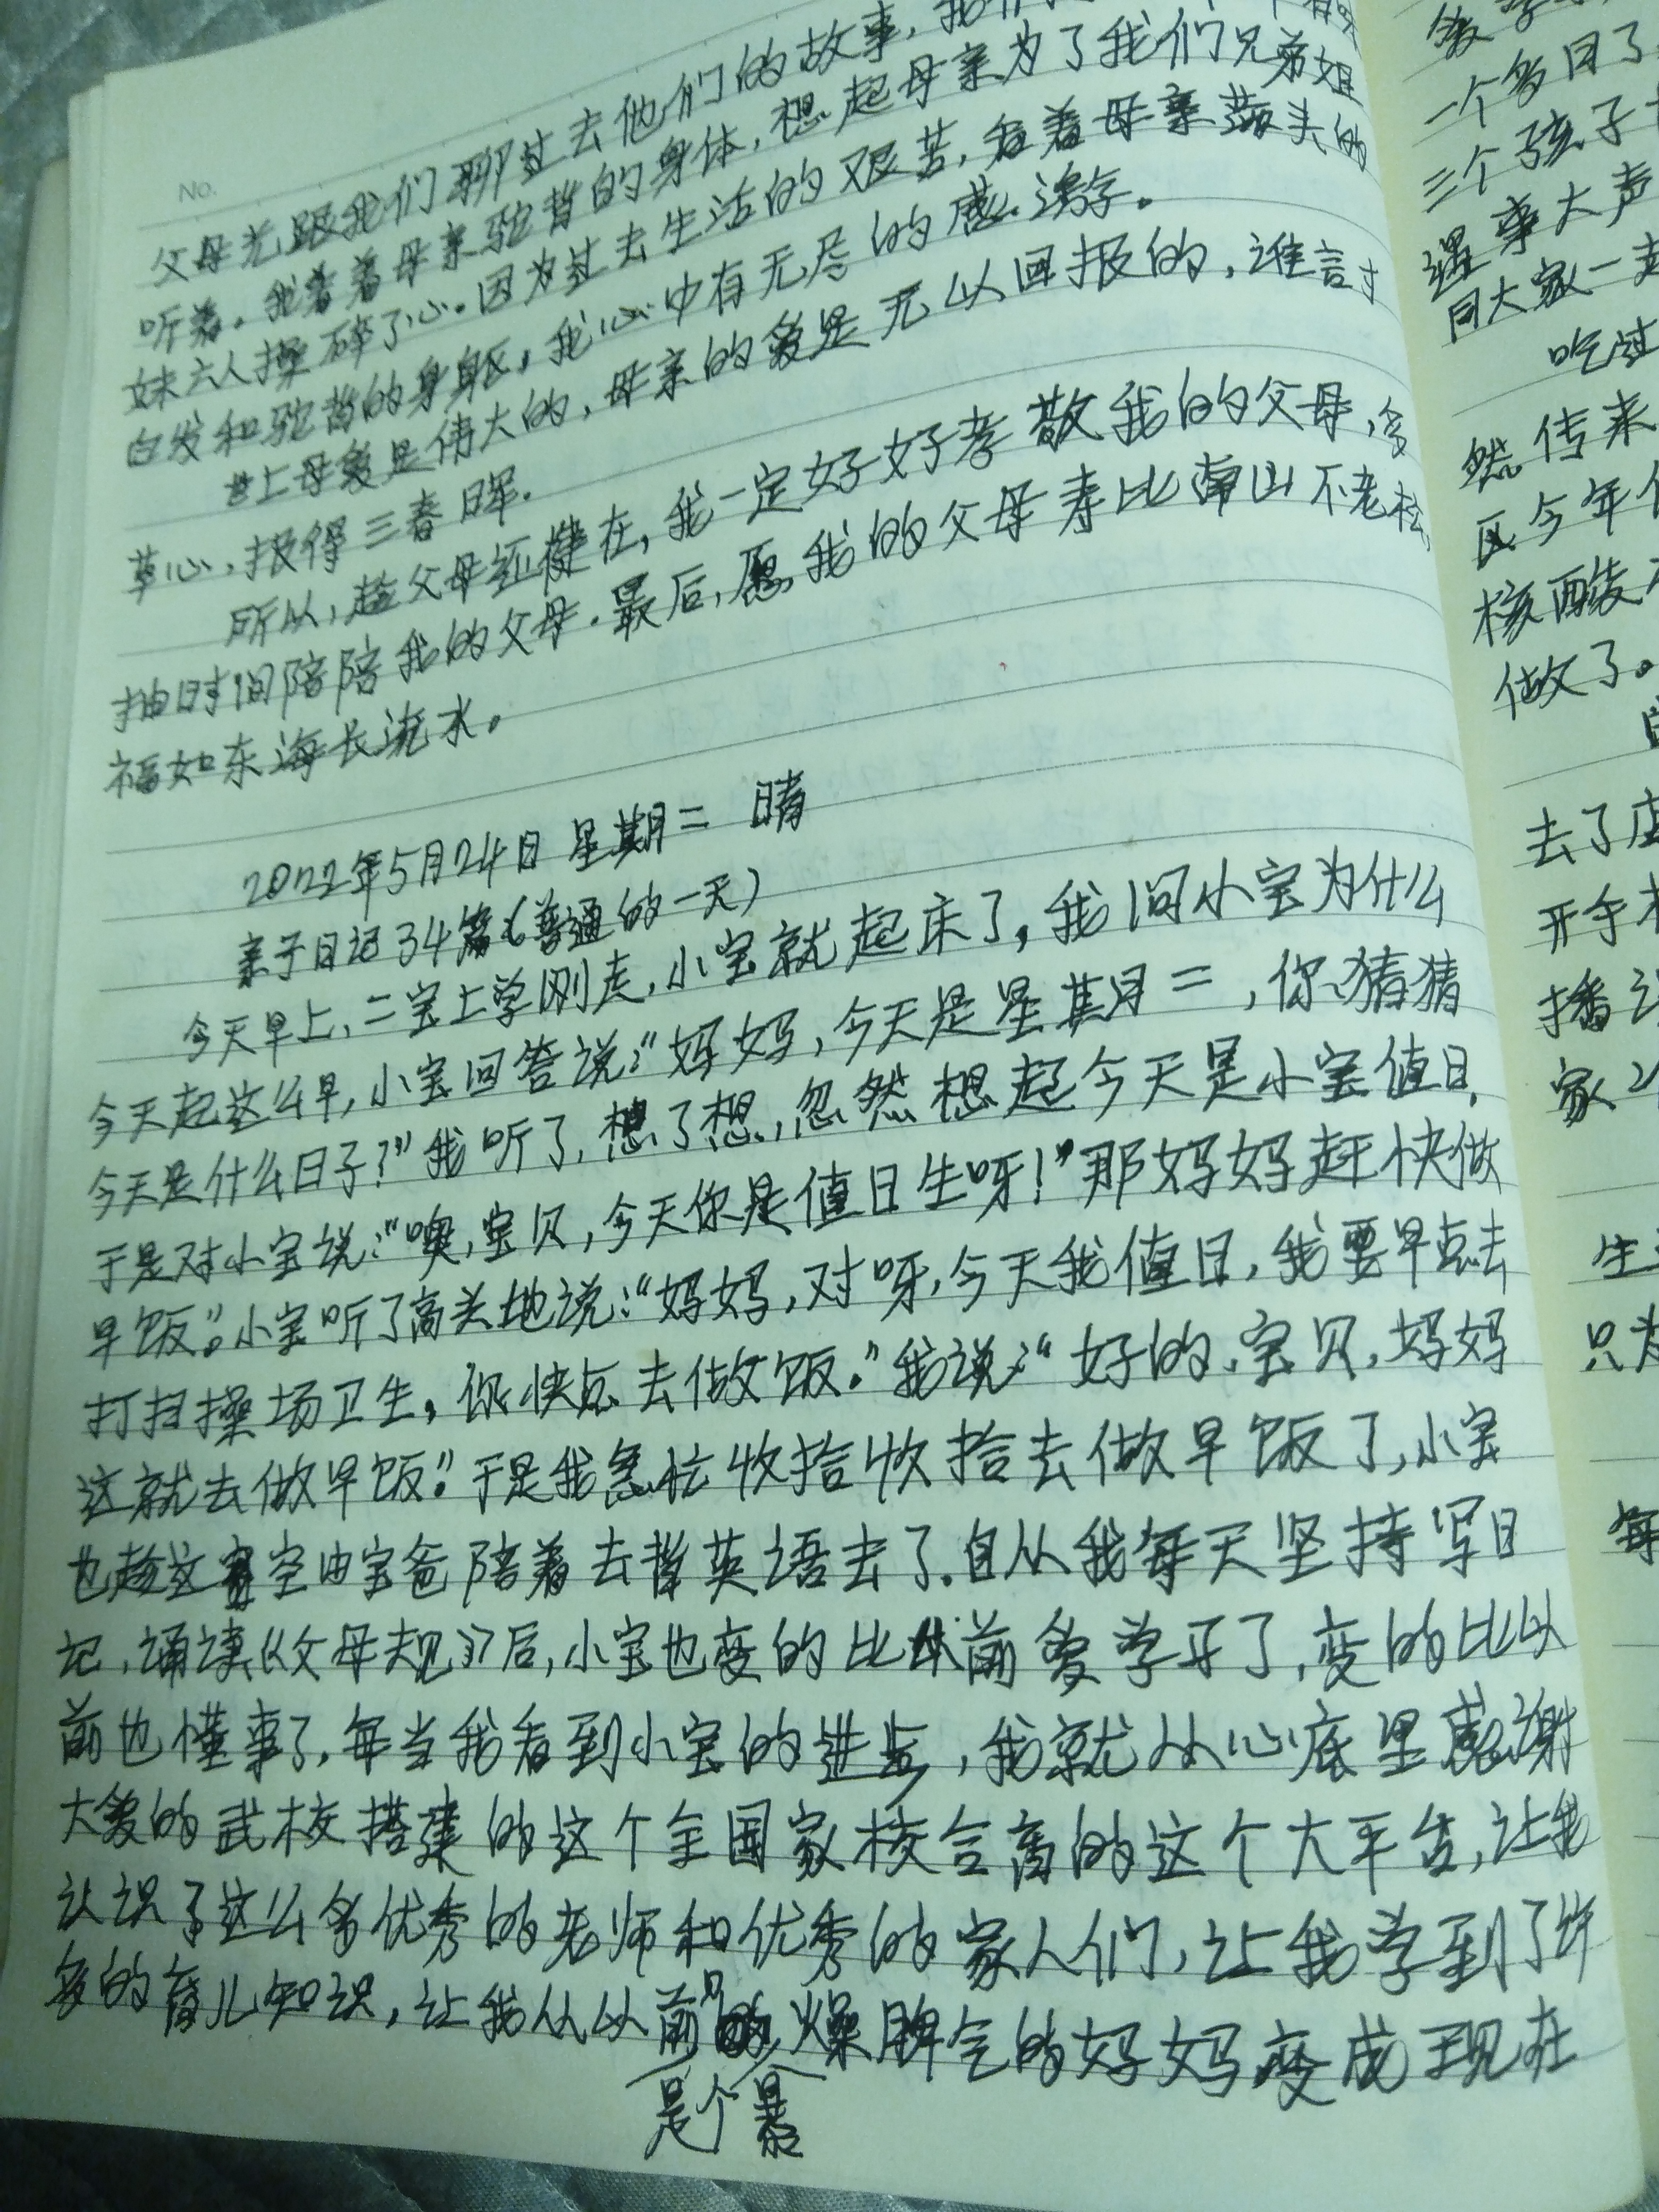 No.
父母光跟我们聊过去他们的故事,我们
听着。我看着母亲驼背的身体,想起母亲为了我们兄弟姐
妹六人操碎了心。因为过去生活的艰苦,看着母亲满头的
白发和驼背的身躯,我心中有无尽的感激字。
世上母爱是伟大的,母亲的爱是无以回报的,谁言寸
草心,报得三春晖.
所以,趁父母还健在,我一定好好孝敬我的父母,多
抽时间陪陪我的父母.最后,愿我的父母寿比南山不老松,
福如东海长流水。
2022年5月24日 星期二 晴
亲子日记34篇《普通的一天》
今天早上,二宝上学刚走,小宝就起床了,我问小宝为什么
今天起这么早,小宝回答说:"妈妈,今天是星期二,你猜猜
今天是什么日子?"我听了,想了想,忽然想起今天是小宝值日,
于是对小宝说:"噢,宝贝,今天你是值日生呀!"那妈妈赶快做
早饭。"小宝听了高兴地说:"妈妈,对呀,今天我值日,我要早点去
打扫操场卫生,你快点去做饭。"我说:"好的,宝贝,妈妈
这就去做早饭。"于是我急忙收拾收拾去做早饭了,小宝
也趁这空由宝爸陪着去背英语去了.自从我每天坚持写日
记,诵读《父母规》后,小宝也变的比以前爱学习了,变的比以
前也懂事了.每当我看到小宝的进步,我就从心底里感谢
大爱的武校搭建的这个全国家校合育的这个大平台,让我
认识了这么多优秀的老师和优秀的家人们,让我学到了许
多的育儿知识,让我从以前是个暴燥脾气的妈妈变成现在
爱
一个多月了
三个孩子
遇事大声
同大家一起
吃过
然传来
区今年
核酸
做了。
去了店
开手
播
家
生
只为
每